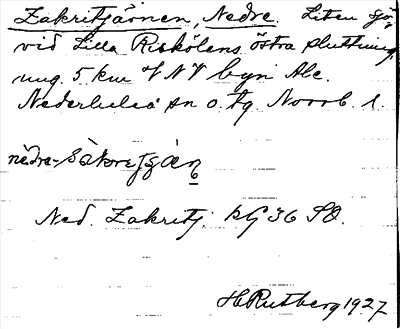 Zakritjärnen, Nedre. Liten sjö,
vid Lilla Riskölens östra sluttning,
ung. 5 km VNV byn Ale.
Nederluleå sn o. tg Norrb. l.
nedre-
Ned. Zakritj. bG 36 SO.
H Rutberg 1927